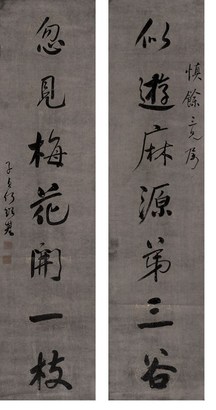 慎餘三兄屬
似遊麻源第三谷
忽見梅花開一枝
子貞何紹基